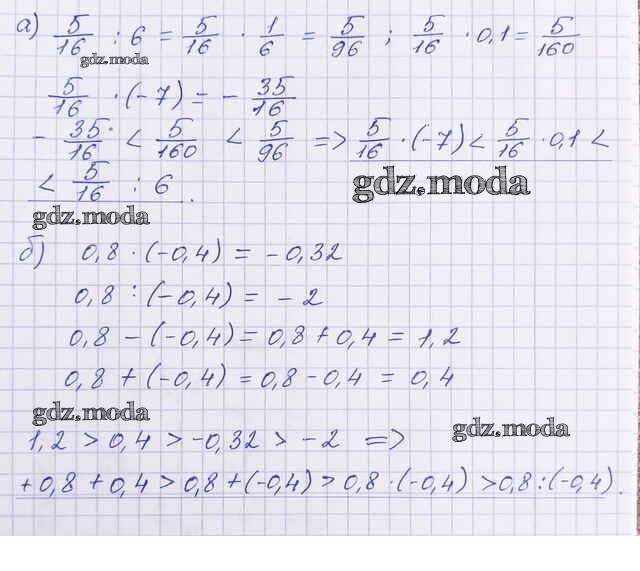 а) 5/16 : 6 = 5/16 · 1/6 = 5/96 ; 5/16 · 0,1 = 5/160
gdz.moda
5/16 · (-7) = - 35/16
- 35/16 < 5/160 < 5/96 => 5/16 · (-7) < 5/16 · 0,1 <
gdz.moda
< 5/16 : 6 .
gdz.moda
б) 0,8 · (-0,4) = -0,32
0,8 : (-0,4) = -2
0,8 - (-0,4) = 0,8 + 0,4 = 1,2
0,8 + (-0,4) = 0,8 - 0,4 = 0,4
gdz.moda
gdz.moda
1,2 > 0,4 > -0,32 > -2 =>
+ 0,8 + 0,4 > 0,8 + (-0,4) > 0,8 · (-0,4) > 0,8 : (-0,4) .